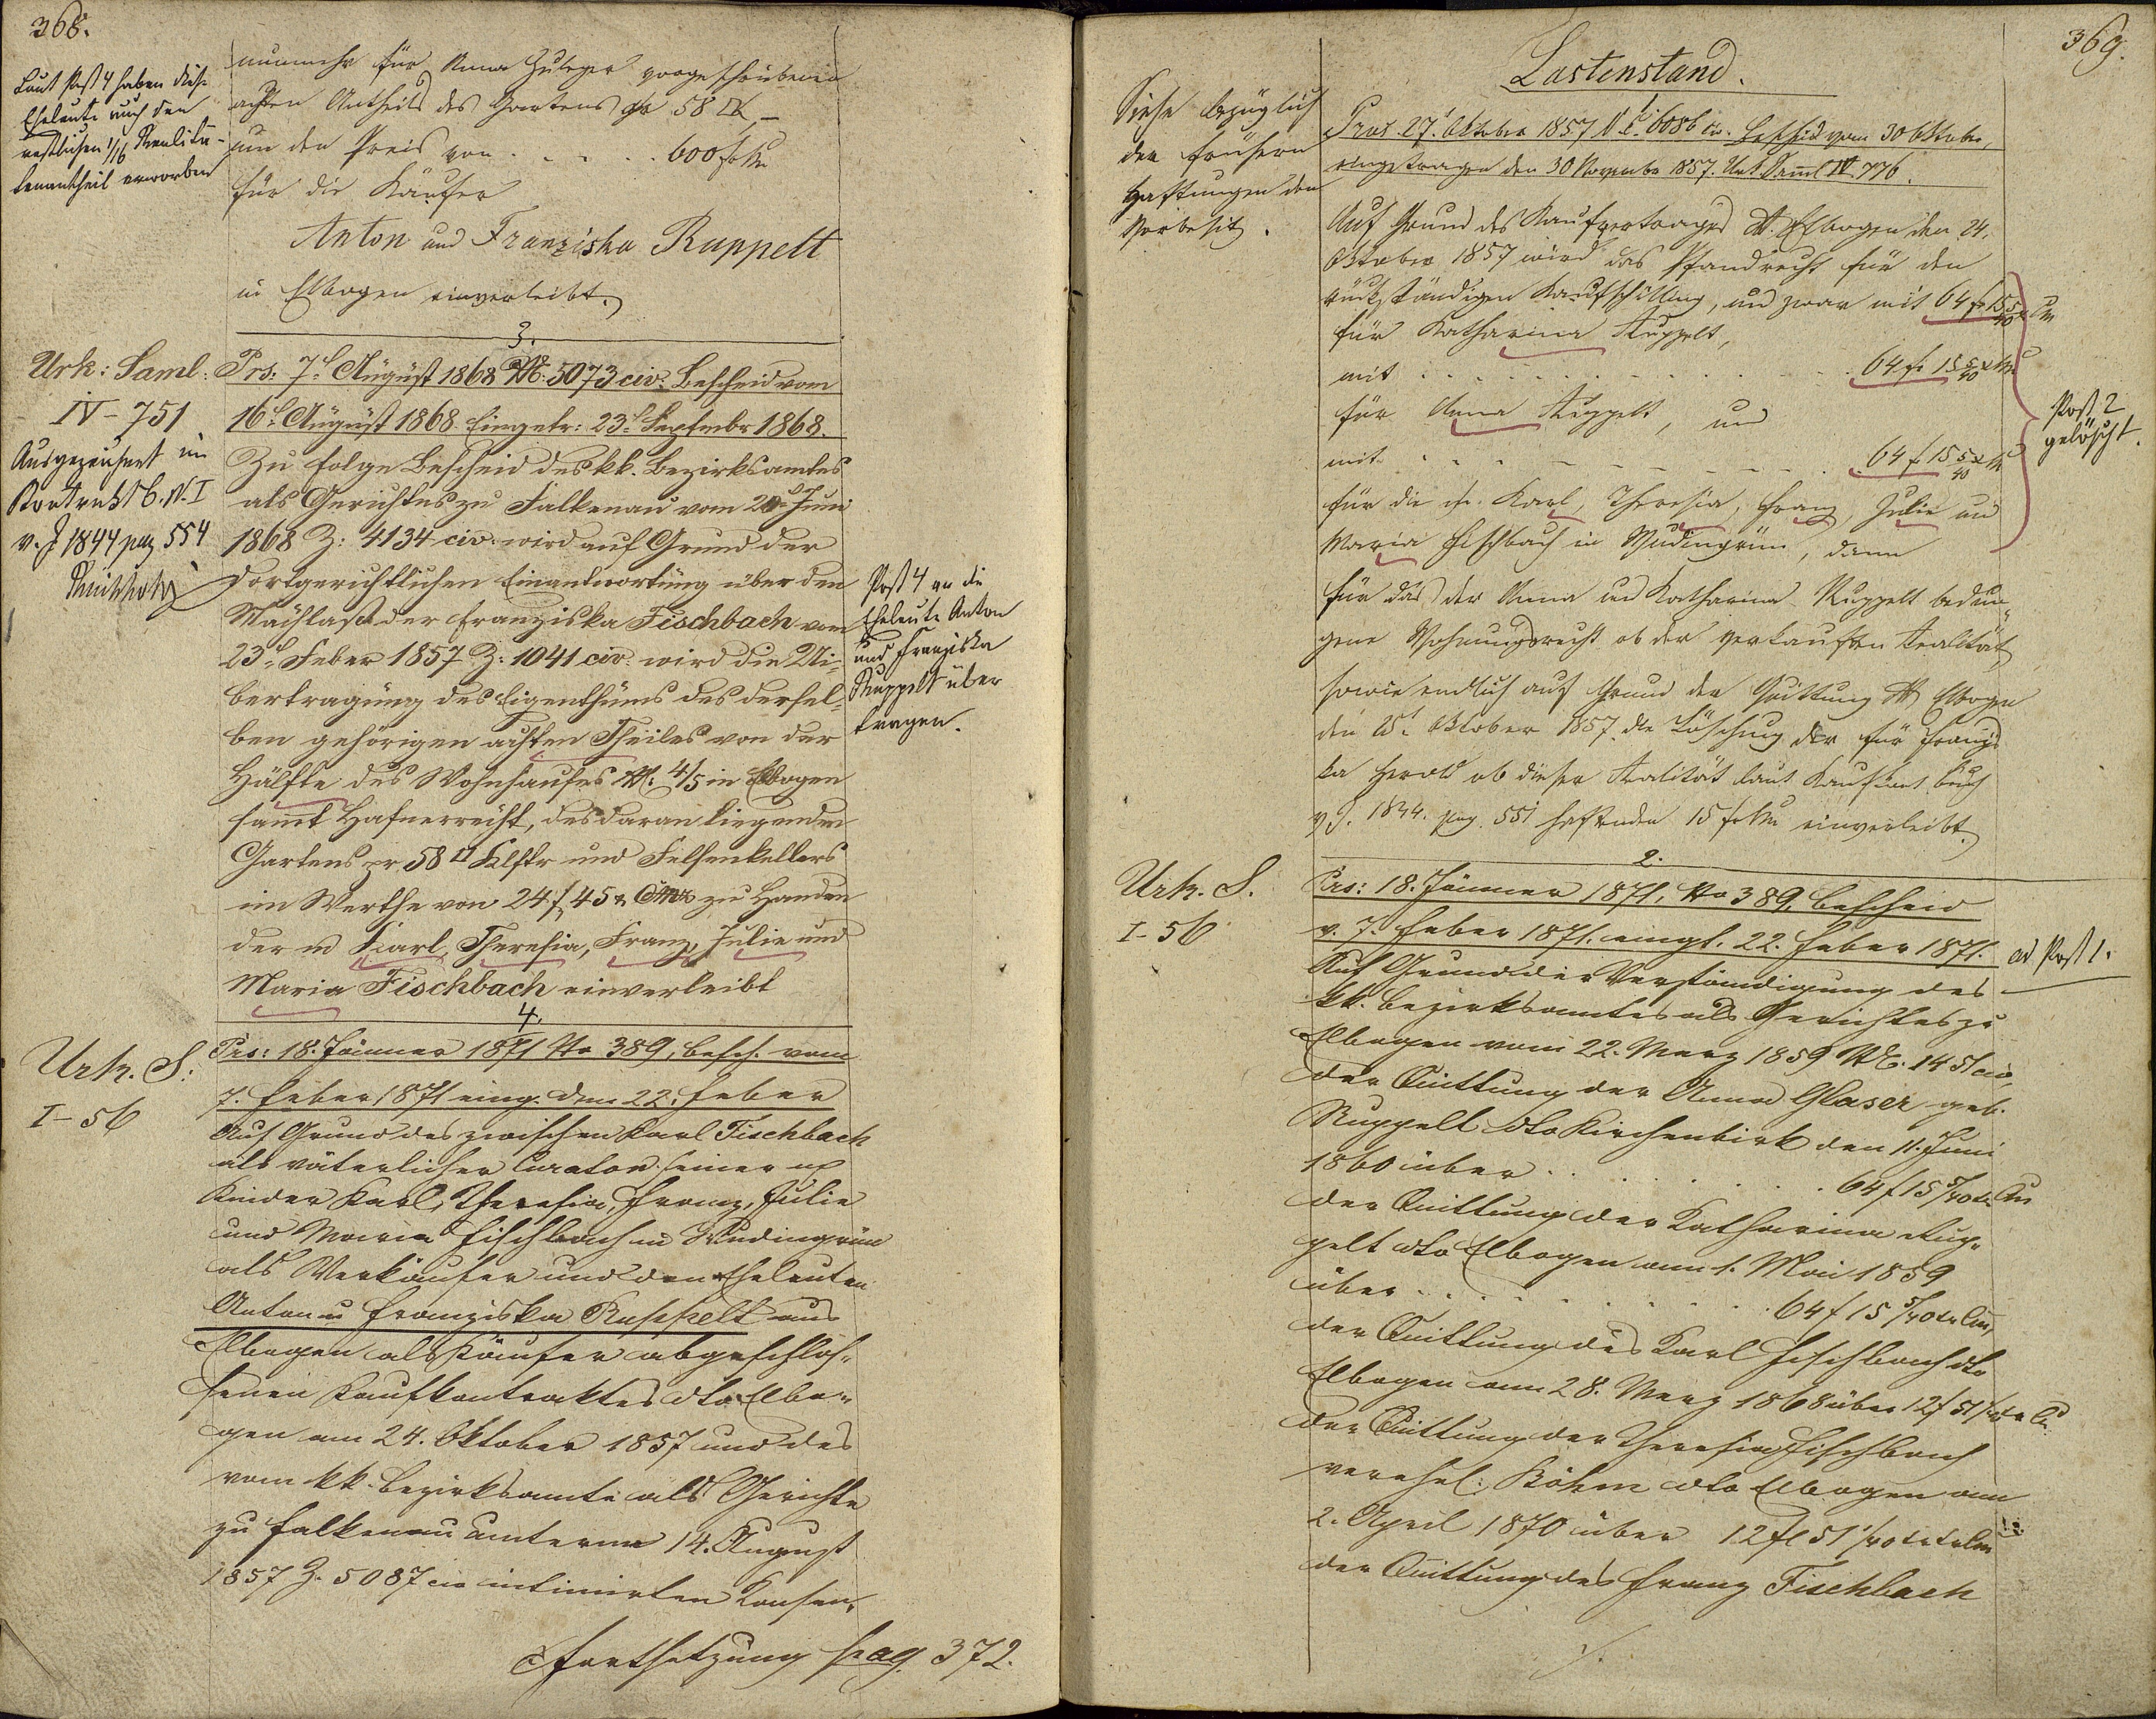 368.
Laut Post 4 haben diese
Eheleute auch den
restlichen 1/16 Realitä-
tenantheil erworben
nunmehr für Anna Zuleger vorgeschriebenen
achten Antheils des Gartens pr 58 □
um den Preis von . . . . . 600 f CM
für die Käufer
Anton und Franziska Ruppelt
in Elbogen einverleibt.
3.
Urk: Saml:
IV - 751
Ausgezeichnet im
Kontrakt B. N. I
v. J 1844 pag 554
Prs: 7t August 1868 No: 5073 civ: Bescheid vom
16t August 1868 Eingetr: 23t Septembr 1868.
Zu Folge Bescheid des kk. Bezirksamtes
als Gerichtes zu Falkenau vom 20t Juni
1868 Z: 4134 civ. wird auf Grund der
dortgerichtlichen Einantwortung über den
Nachlaß der Franziska Fischbach vom
23t Feber 1857 Z: 1041 civ. wird die Ui-
bertragung des Eigenthums des dersel-
ben gehörigen achten Theiles von der
Hälfte des Wohnhauses No: 4/5 in Elbogen
samt Hafnerrecht, des daran liegenden
Gartens pr 58 □ Klftr und Felsenkellers
im Werthe von 24 f 45 x CMz zu Handen
der m Karl, Theresia, Franz, Julie und
Maria Fischbach einverleibt
Post 4 an die
Eheleute Anton
und Franziska
Ruppelt über
tragen.
4.
Urk. S:
I - 56
Prs: 18. Jänner 1871 No 389, besch. vom
7. Feber 1871 eing. den 22. Feber
Auf Grund des zwischen Karl Fischbach
als väterlicher Curator seiner mj
Kinder Karl, Theresia, Franz, Julie
und Maria Fischbach in Wudingrün
als Verkäufer und den Eheleuten
Anton u Franziska Ruppelt aus
Elbogen als Käufer abgeschlos-
senen Kaufkontraktes dto Elbo-
gen am 24. Oktober 1857 und des
vom kk. Bezirksamte als Gerichte
zu Falkenau unterm 14. August
1857 Z. 5087 civ intimirten Konsen-
Fortsetzung pag. 372.
369.
Lastenstand.
Siehe bezüglich
der frühern
Haftungen den
Vorbesitz.
1.
Prs. 27t Oktober 1857 N.E. 6086 civ. Bescheid vom 30 Oktober,
eingetragen den 30 November 1857. Urk. Saml IV. 776.
Auf Grund des Kaufvertrages dto. Elbogen den 24.
Oktober 1857 wird das Pfandrecht für den
rückständigen Kaufschilling, und zwar mit 64 f 15 5/40 x CM
für Katharina Ruppelt,
mit . . . . . . . . 64 f 15 5/40 x CM
für Anna Ruppelt, und
mit . . . . . . . . 64 f 15 5/40 x CM
für die m. Karl, Theresia, Franz, Julie und
Maria Fischbach in Wudingrün, dann
für das der Anna und Katharina Ruppelt bedun-
gene Wohnungsrecht ob der verkauften Realität,
sowie endlich auf Grund der Quittung dto Elbogen
den 25t Oktober 1857 die Löschung der für Franzis
ka Herold ob dieser Realität laut Kaufkont. buch
v J. 1844. pag. 551 haftenden 15 f CM einverleibt.
Post 2
gelöscht.
2.
Urk. S.
I - 56
Prs: 18. Jänner 1871, No 389, Bescheid
v. 7. Feber 1871. eingt. 22. Feber 1871.
ad Post 1.
Auf Grund der Verständigung des
kk. Bezirksamtes als Gerichtes zu
Elbogen vom 22. Merz 1859 No. 1451 civ,
der Quittung der Anna Glaser geb.
Ruppelt dto Kirchenbirk den 11. Juni
1860 über . . . . . 64 f 15 5/40 x CM
der Quittung der Katharina Rup-
pelt dto Elbogen am 1. Mai 1859
über . . . . . . 64 f 15 5/40 x CM,
der Quittung des Karl Fischbach dto
Elbogen am 28. Merz 1868 über 12 f 51 1/40 x CM
der Quittung der Theresia Fischbach
verehel: Böhm dto Elbogen am
2. April 1870 über 12 f 51 1/40 x CM
der Quittung des Franz Fischbach